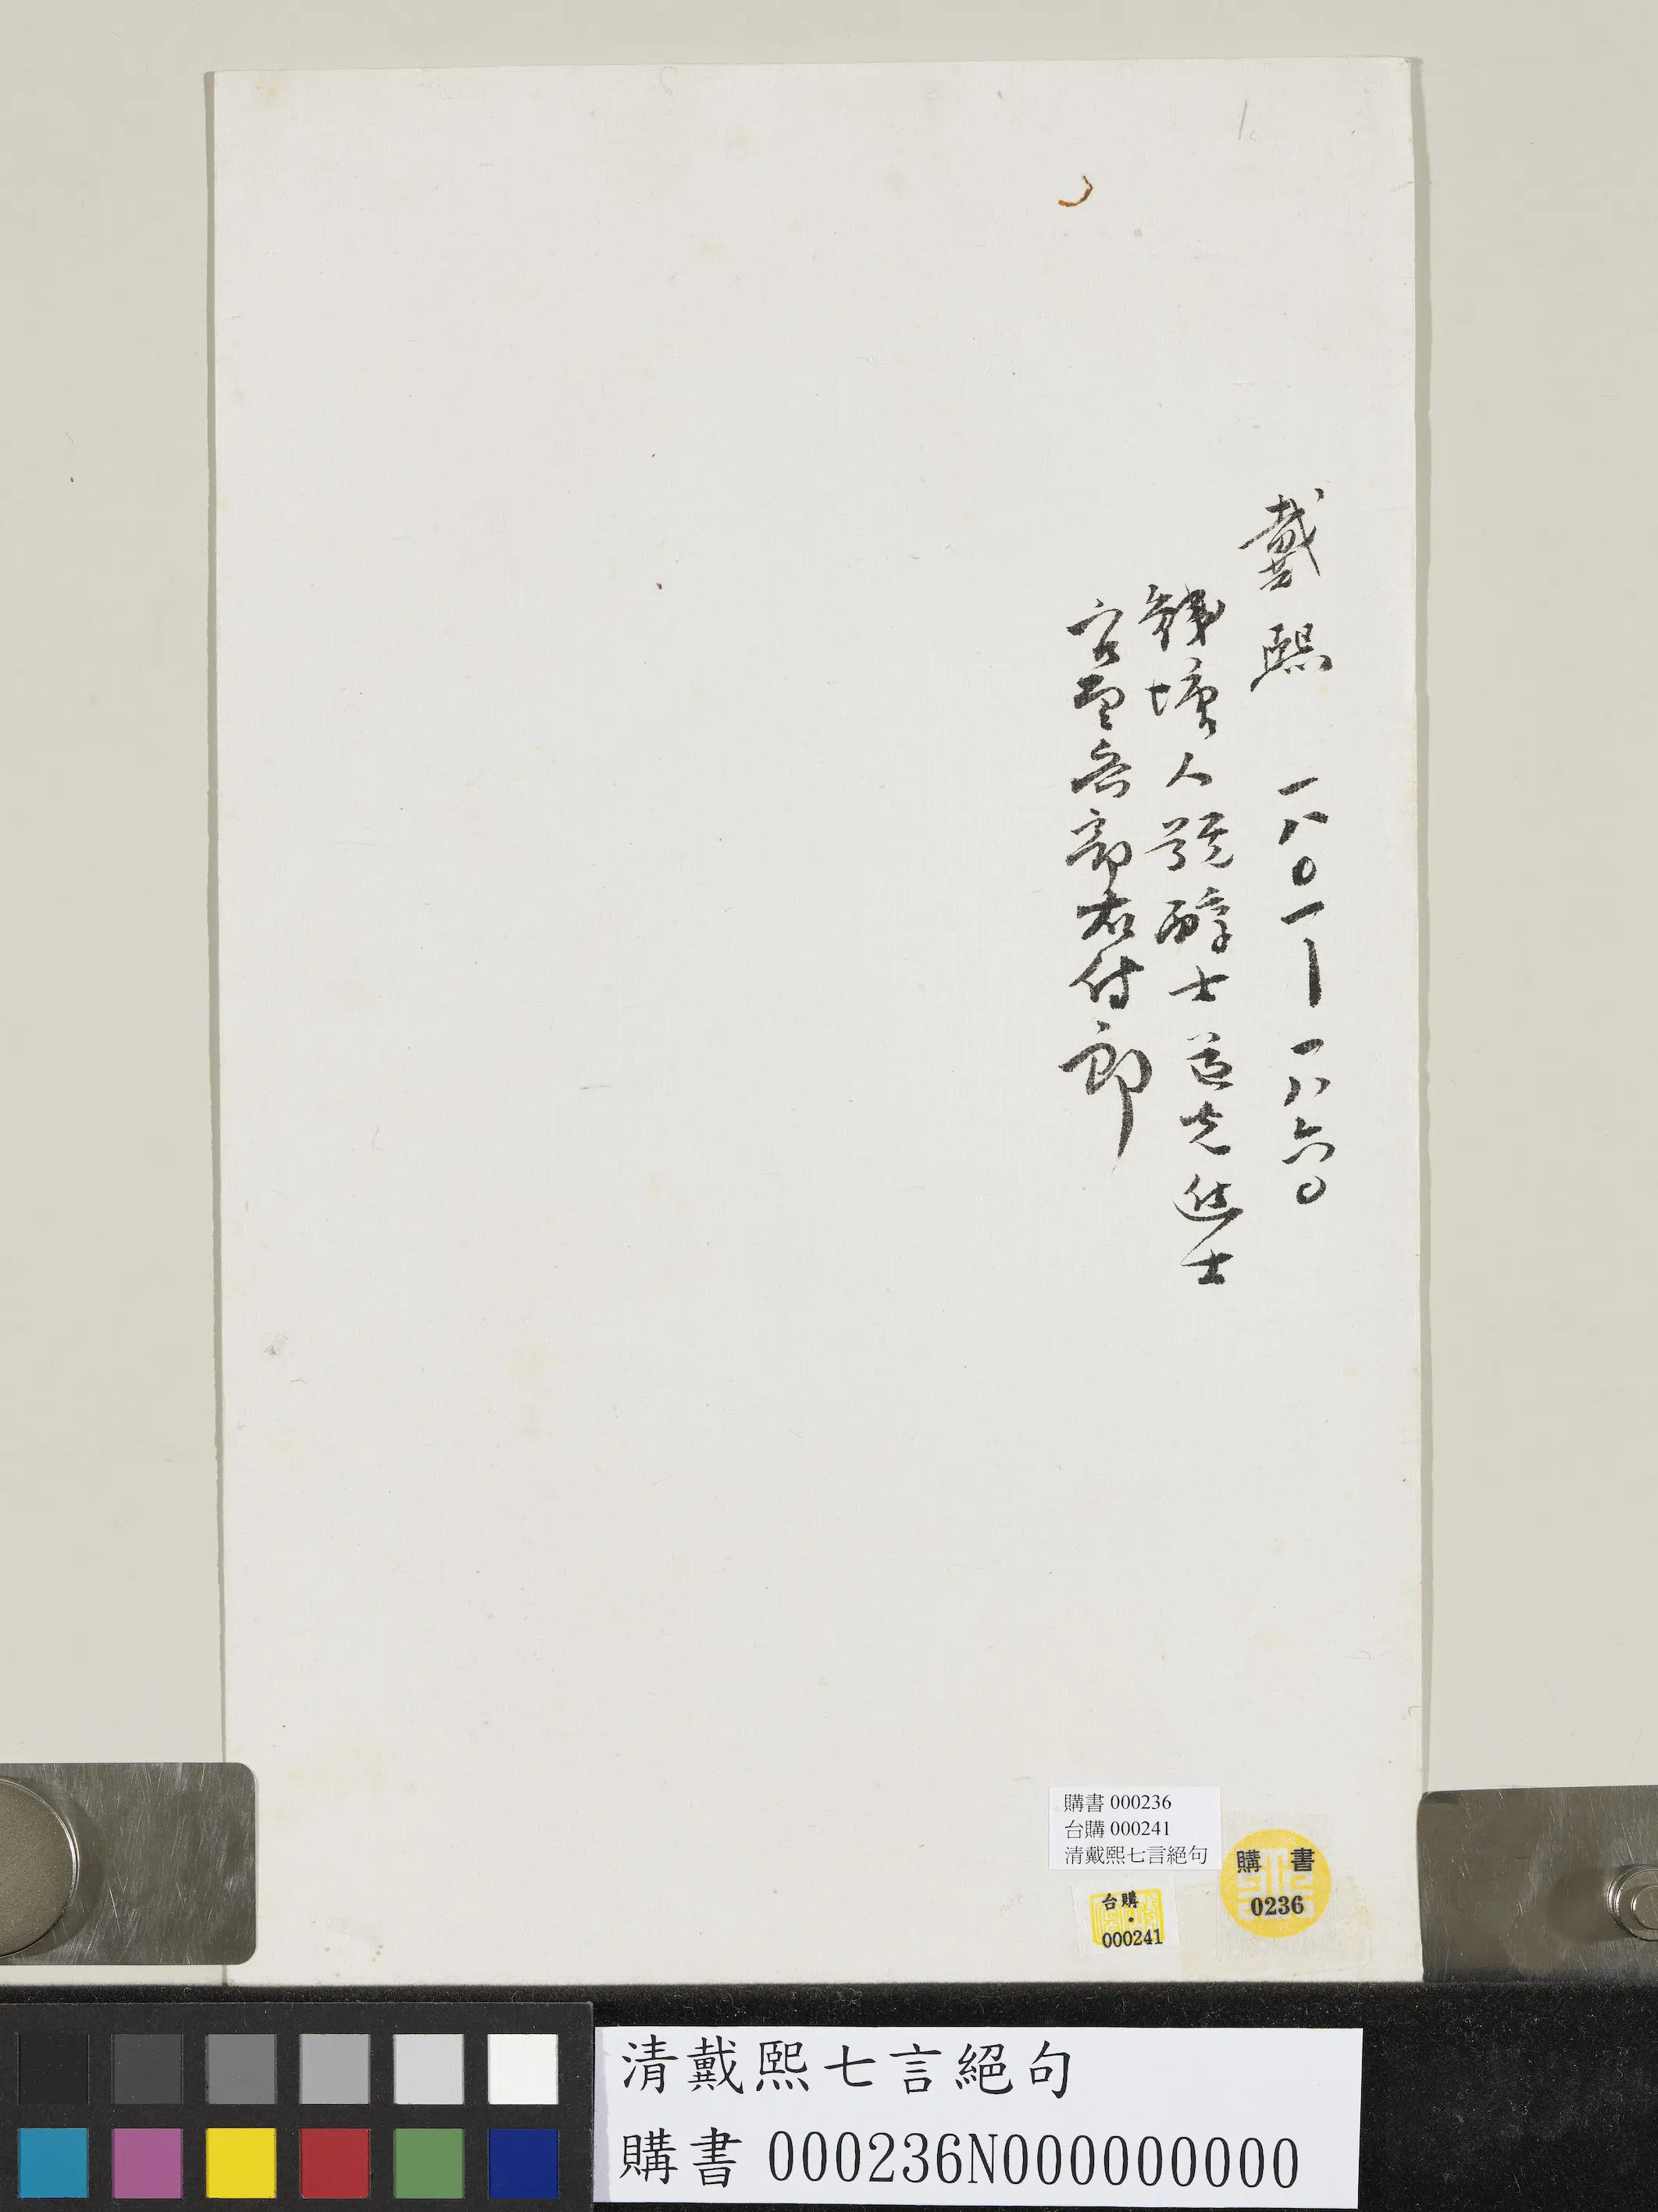 戴熙 一八〇一－一八六〇
錢塘人號醇士道光進士
官至兵部右侍郎
購書 000236
台購 000241
清戴熙七言絕句
購 書
0236
台購
000241
清戴熙七言絕句
購書 000236N000000000